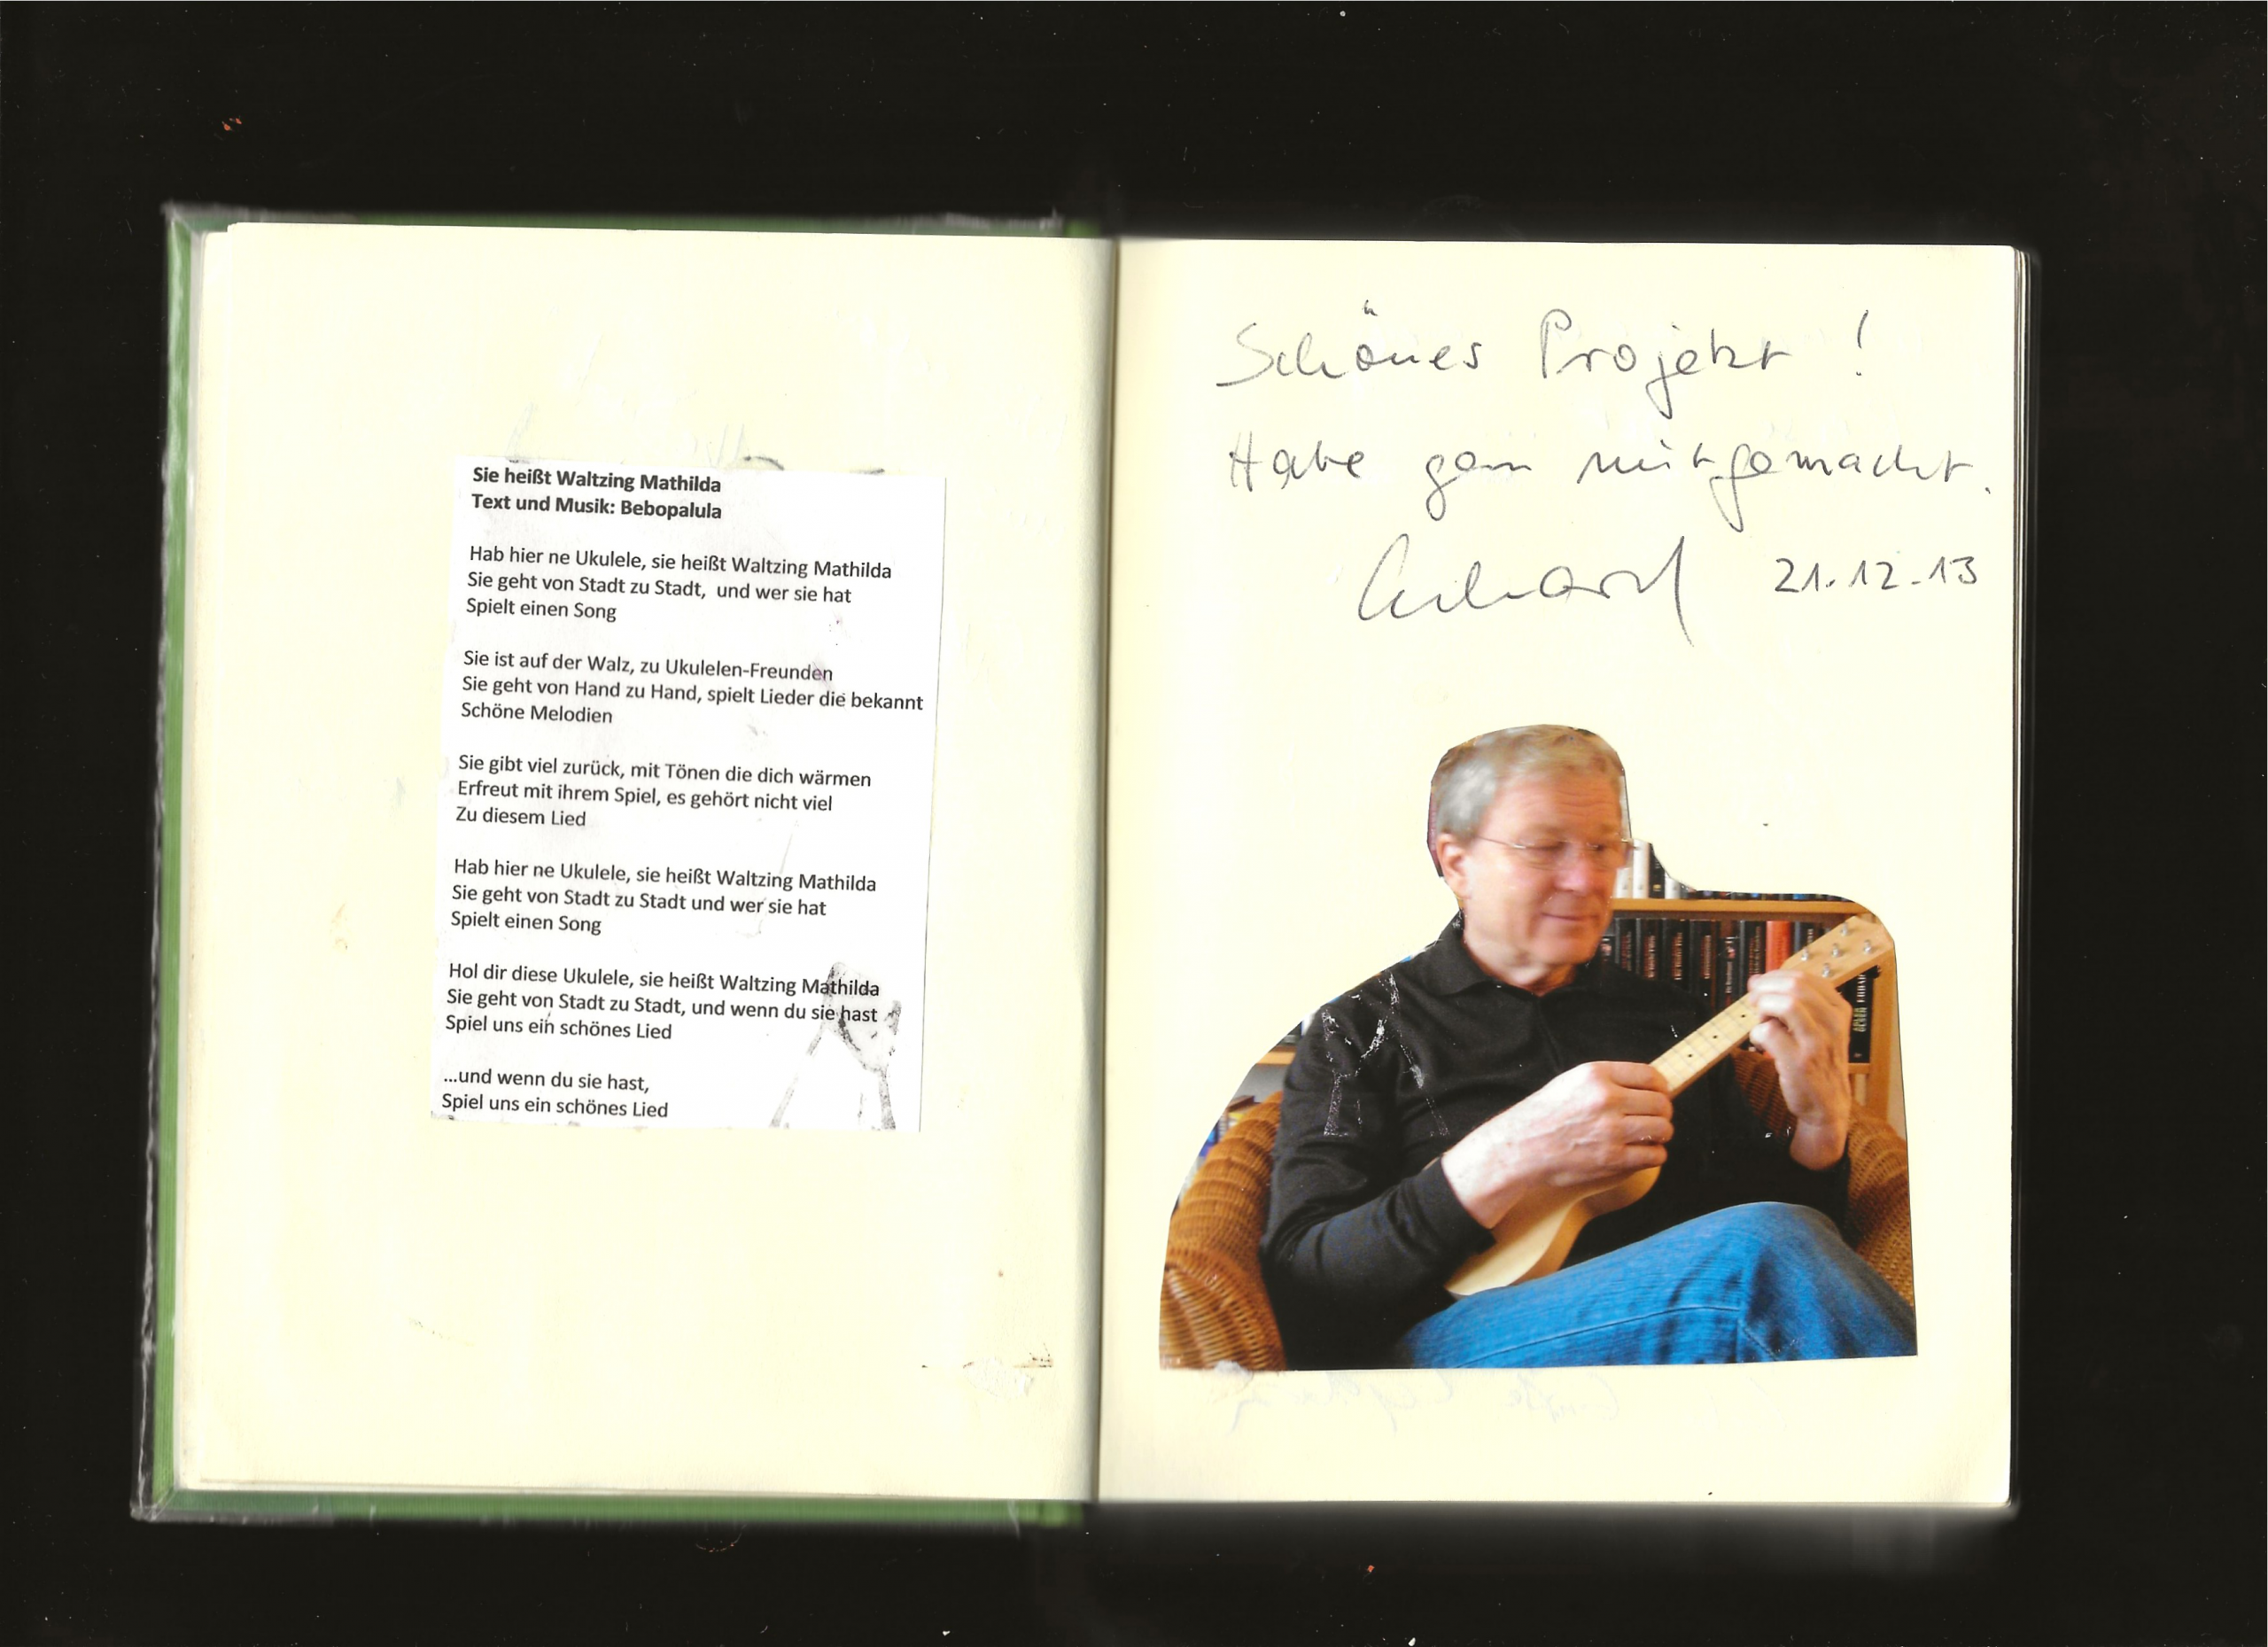 Sie heißt Waltzing Mathilda
Text und Musik: Bebopalula
Hab hier ne Ukulele, sie heißt Waltzing Mathilda
Sie geht von Stadt zu Stadt,  und wer sie hat
Spielt einen Song
Sie ist auf der Walz, zu Ukulelen-Freunden
Sie geht von Hand zu Hand, spielt Lieder die bekannt
Schöne Melodien
Sie gibt viel zurück, mit Tönen die dich wärmen
Erfreut mit ihrem Spiel, es gehört nicht viel
Zu diesem Lied
Hab hier ne Ukulele, sie heißt Waltzing Mathilda
Sie geht von Stadt zu Stadt und wer sie hat
Spielt einen Song
Hol dir diese Ukulele, sie heißt Waltzing Mathilda
Sie geht von Stadt zu Stadt, und wenn du sie hast
Spiel uns ein schönes Lied
...und wenn du sie hast,
Spiel uns ein schönes Lied
Schönes Projekt !
Habe gern mitgemacht.
21.12.13